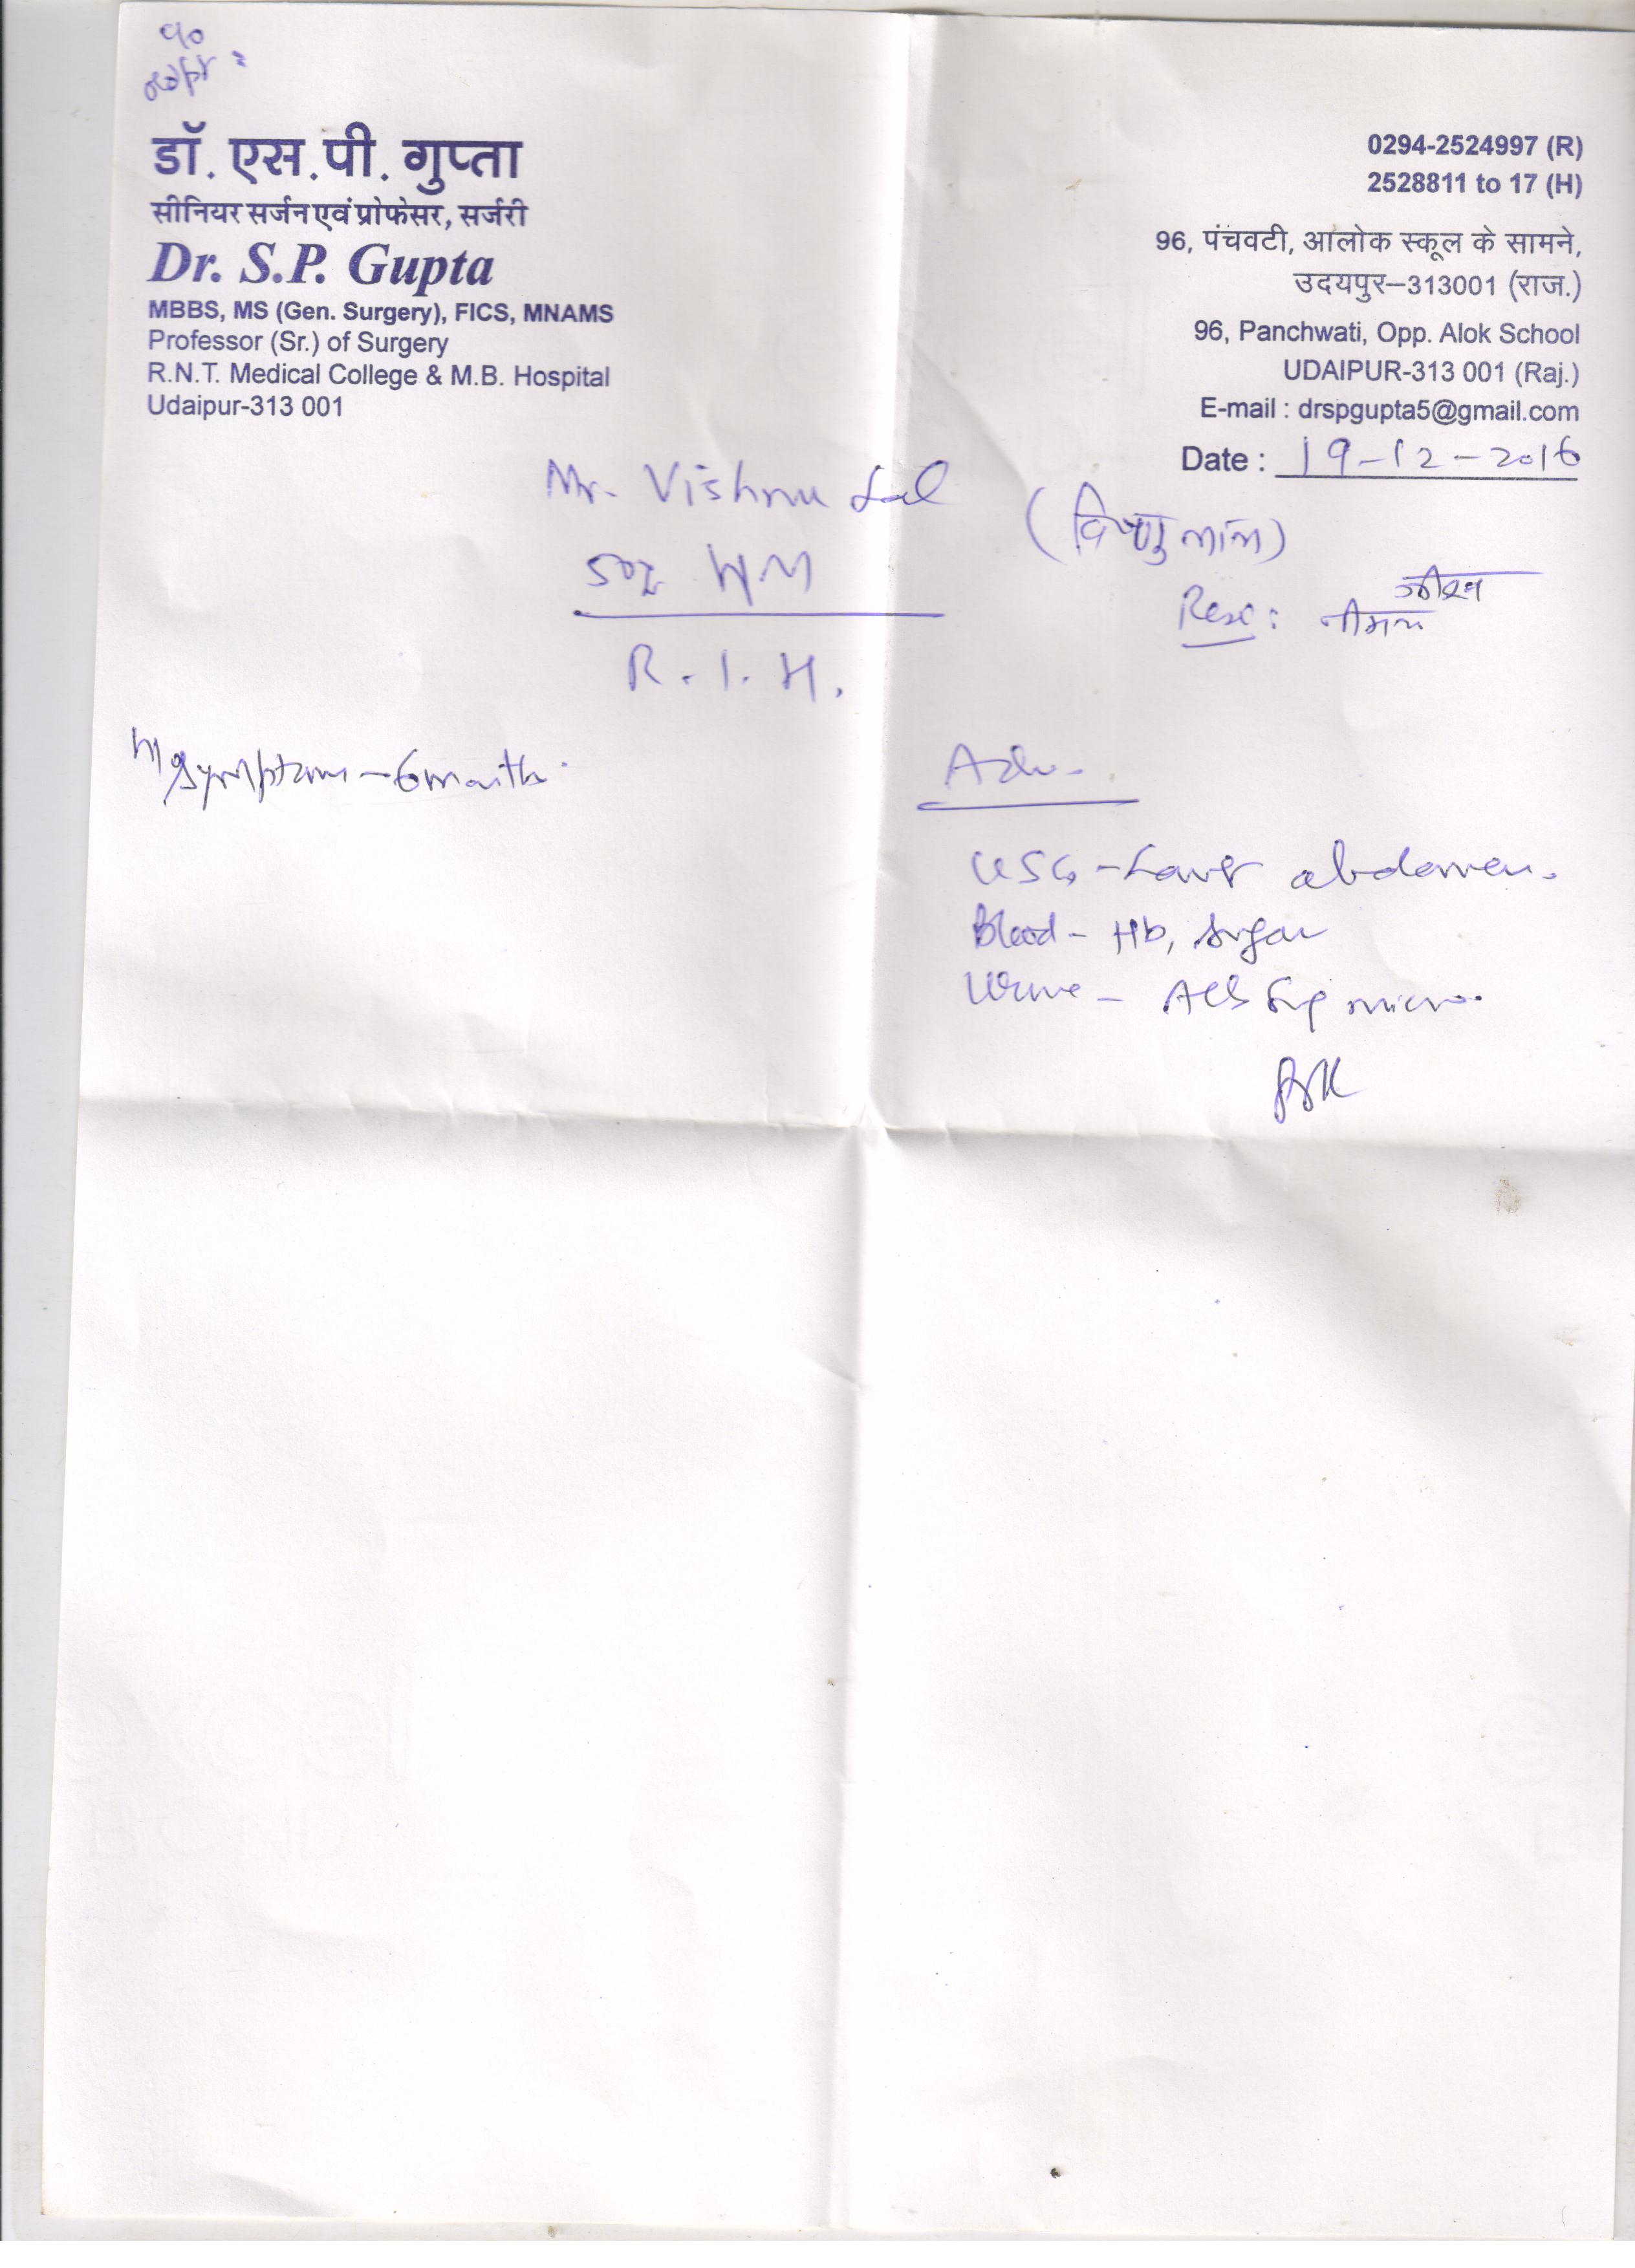 डॉ. एस.पी. गुप्ता
सीनियर सर्जन एवं प्रोफेसर, सर्जरी
Dr. S.P. Gupta
MBBS, MS (Gen. Surgery), FICS, MNAMS
Professor (Sr.) of Surgery
R.N.T. Medical College & M.B. Hospital
Udaipur-313 001
0294-2524997 (R)
2528811 to 17 (H)
96, पंचवटी, आलोक स्कूल के सामने,
उदयपुर–313001 (राज.)
96, Panchwati, Opp. Alok School
UDAIPUR-313 001 (Raj.)
E-mail : drspgupta5@gmail.com
Date : 19-12-2016
Mr. Vishnu Lal (विष्णु लाल)
R.I.H.
Symptoms - 6 months.
Adv.
USG - Lower abdomen.
Blood - Hb, Sugar
Urine - Alb Sug micro.